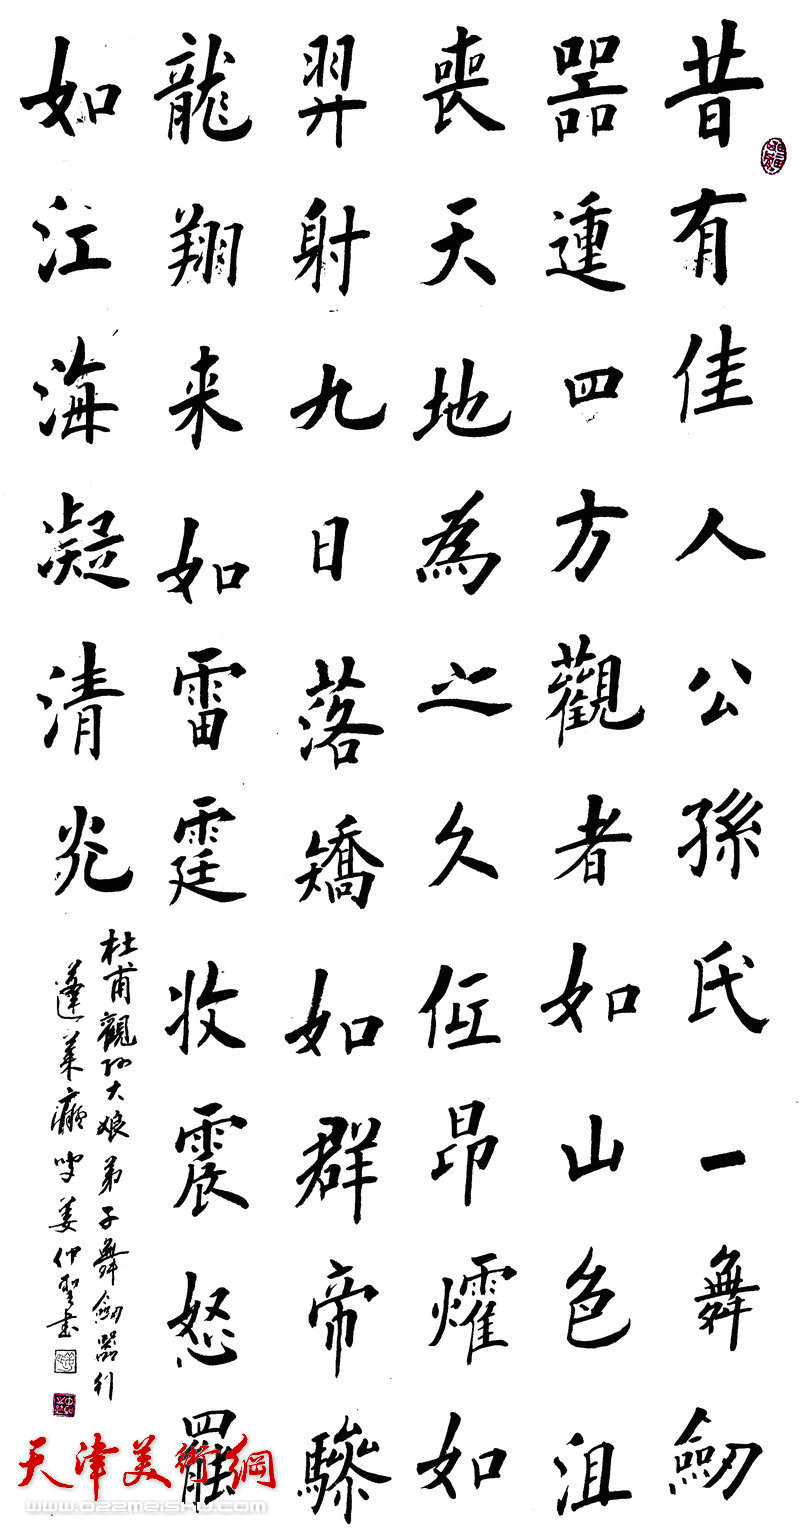 昔有佳人公孫氏一舞劒
噐運四方觀者如山色沮
喪天地為之久低昂燿如
羿射九日落矯如群帝驂
龍翔来如雷霆收震怒罷
如江海凝清光
杜甫觀孙大娘弟子舞劒器行
蓬莱 叟姜仰聖书
天津美術網
www.022meishu.com